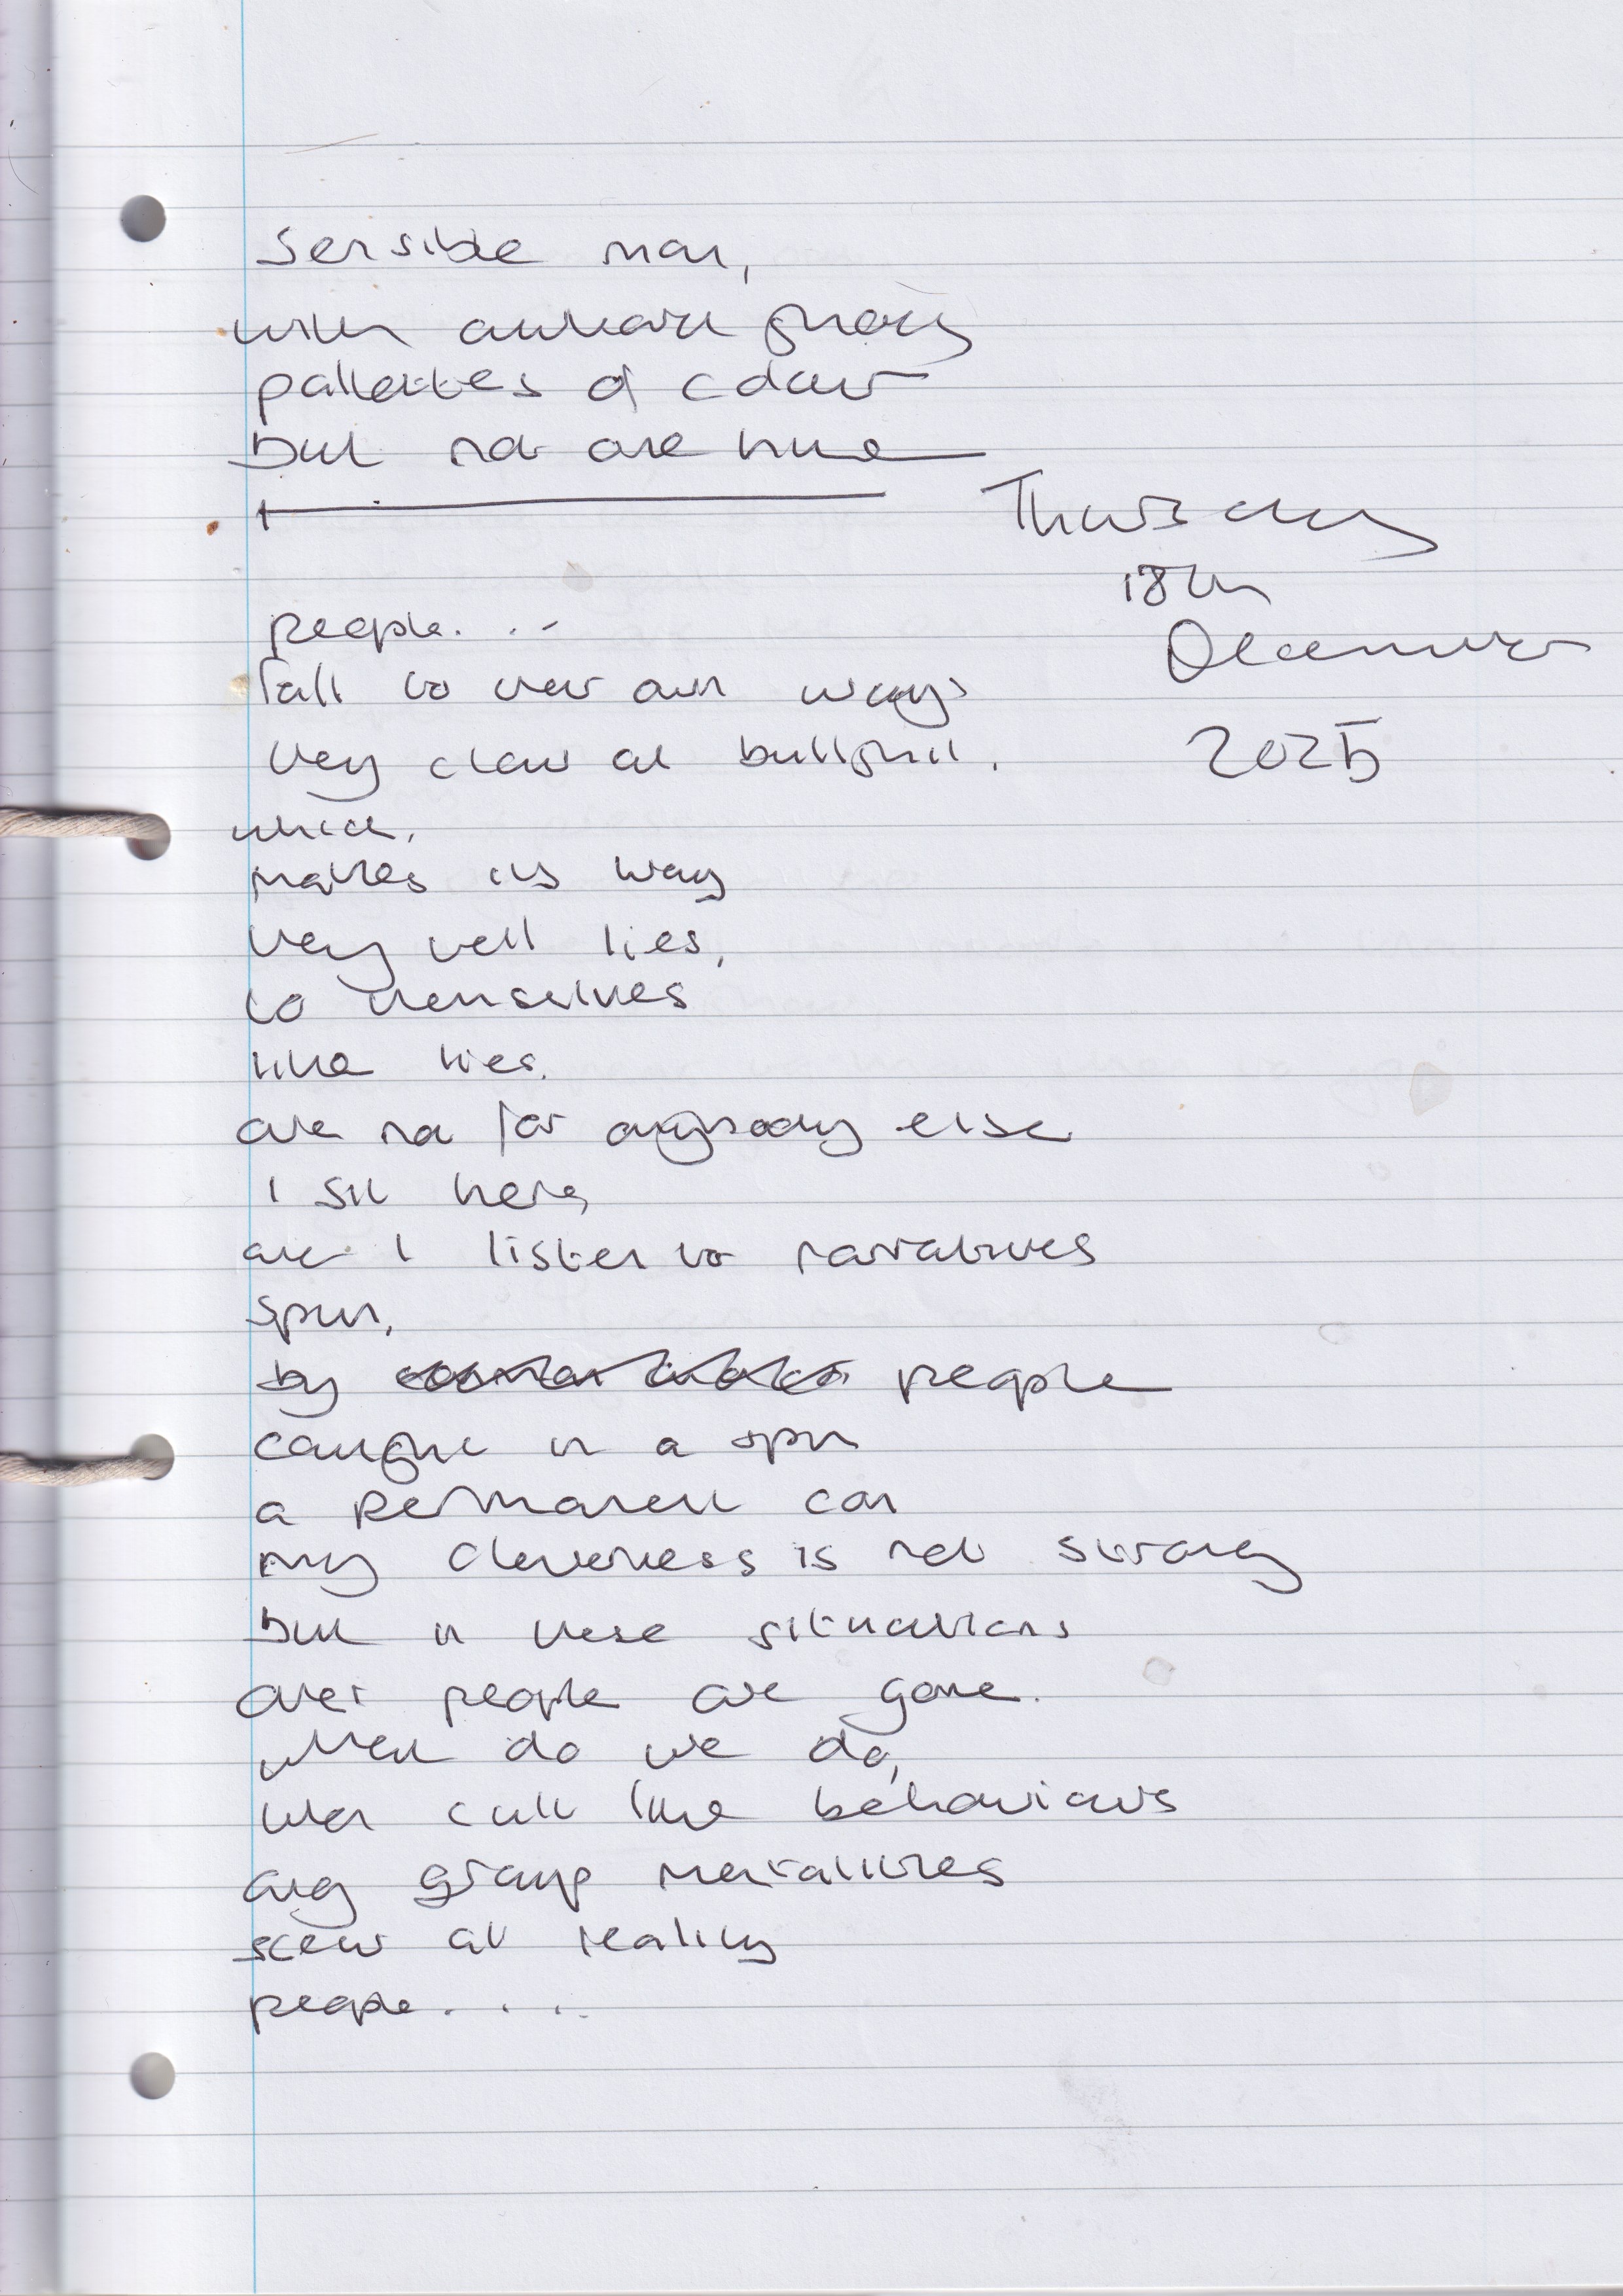 sensible man,
with awkward
pallettes of colour
but not one hue
Thursday
18th
December
2025
people...
fall to their own ways
they claw at bullshit.
which,
makes its way
they tell lies,
to themselves
like lies.
are not for anybody else
I sit here,
and I listen to narratives
spun,
by people
caught in a spin
a permanent con
my cleverness is not strong
but in these situations
over people are gone.
what do we do,
when cult like behaviours
any group mentalities
skew at reality
people....